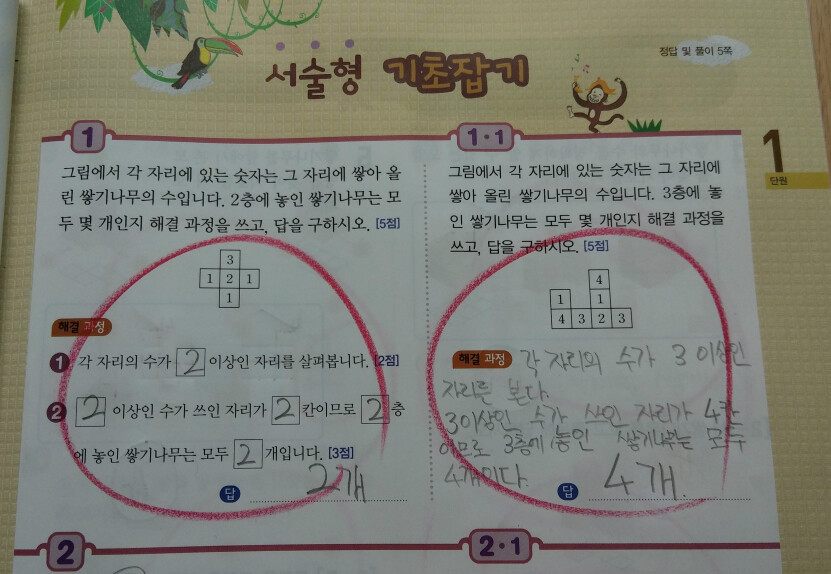 서술형 기초잡기
정답 및 풀이 5쪽
1
단원
1
그림에서 각 자리에 있는 숫자는 그 자리에 쌓아 올
린 쌓기나무의 수입니다. 2층에 놓인 쌓기나무는 모
두 몇 개인지 해결 과정을 쓰고, 답을 구하시오. [5점]
3
1 2 1
1
해결 과정
1 각 자리의 수가 2 이상인 자리를 살펴봅니다. [2점]
2 2 이상인 수가 쓰인 자리가 2 칸이므로 2 층
에 놓인 쌓기나무는 모두 2 개입니다. [3점]
답 2개
1·1
그림에서 각 자리에 있는 숫자는 그 자리에
쌓아 올린 쌓기나무의 수입니다. 3층에 놓
인 쌓기나무는 모두 몇 개인지 해결 과정을
쓰고, 답을 구하시오. [5점]
4
1 1
4 3 2 3
해결 과정 각 자리의 수가 3 이상인
자리를 본다.
3이상인 수가 쓰인 자리가 4칸
이므로 3층에 놓인 쌓기나무는 모두
4개이다.
답 4개.
2
2·1